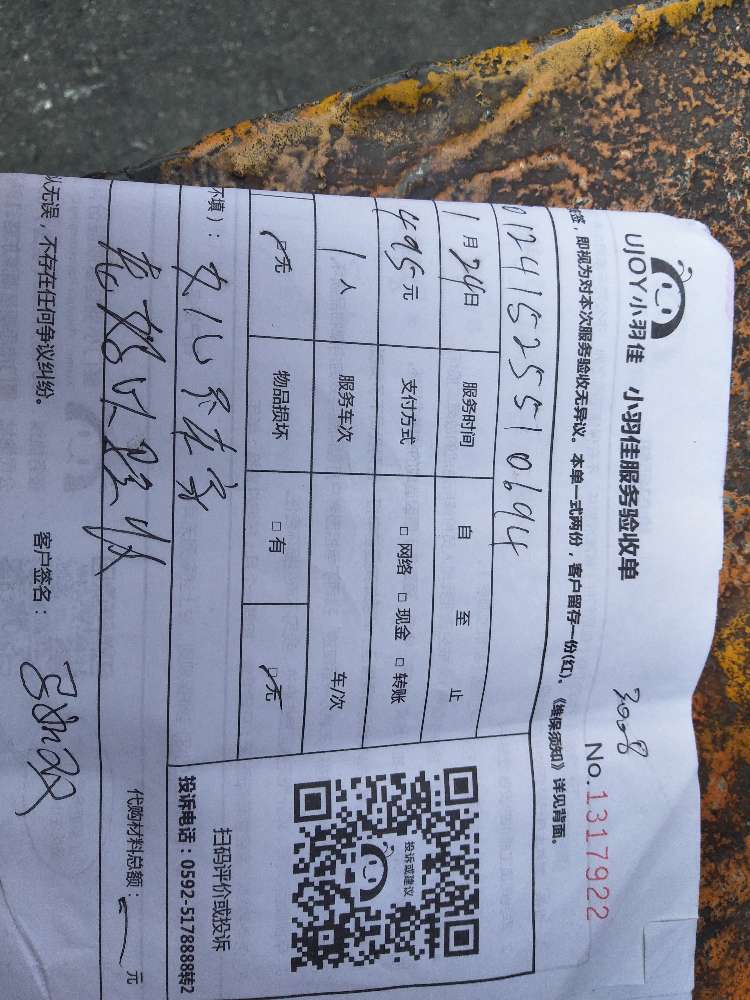 UJOY小羽佳 小羽佳服务验收单
3008
No.1317922
签，即视为对本次服务验收无异议。本单一式两份，客户留存一份(红)。《维保须知》详见背面。
01241525510694
1月24日 服务时间 自 至 止
495元 支付方式 □网络 □现金 □转账
1人 服务车次 车/次
□无 物品损坏 □有 □无
投诉或建议
扫码评价或投诉
投诉电话：0592-5178888转2
不填）：
代购材料总额： 元
无误，不存在任何争议纠纷。 客户签名：